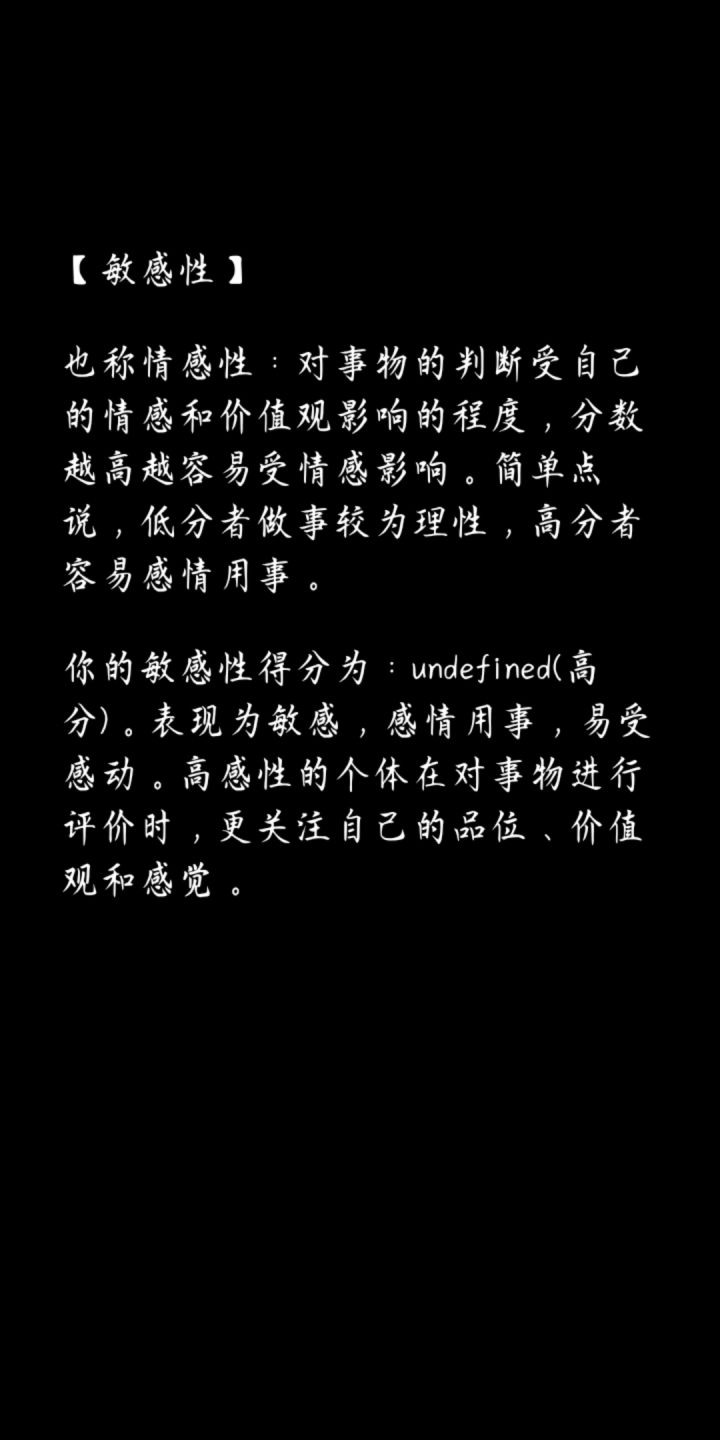 【敏感性】
也称情感性：对事物的判断受自己
的情感和价值观影响的程度，分数
越高越容易受情感影响。简单点
说，低分者做事较为理性，高分者
容易感情用事。
你的敏感性得分为：undefined(高
分)。表现为敏感，感情用事，易受
感动。高感性的个体在对事物进行
评价时，更关注自己的品位、价值
观和感觉。